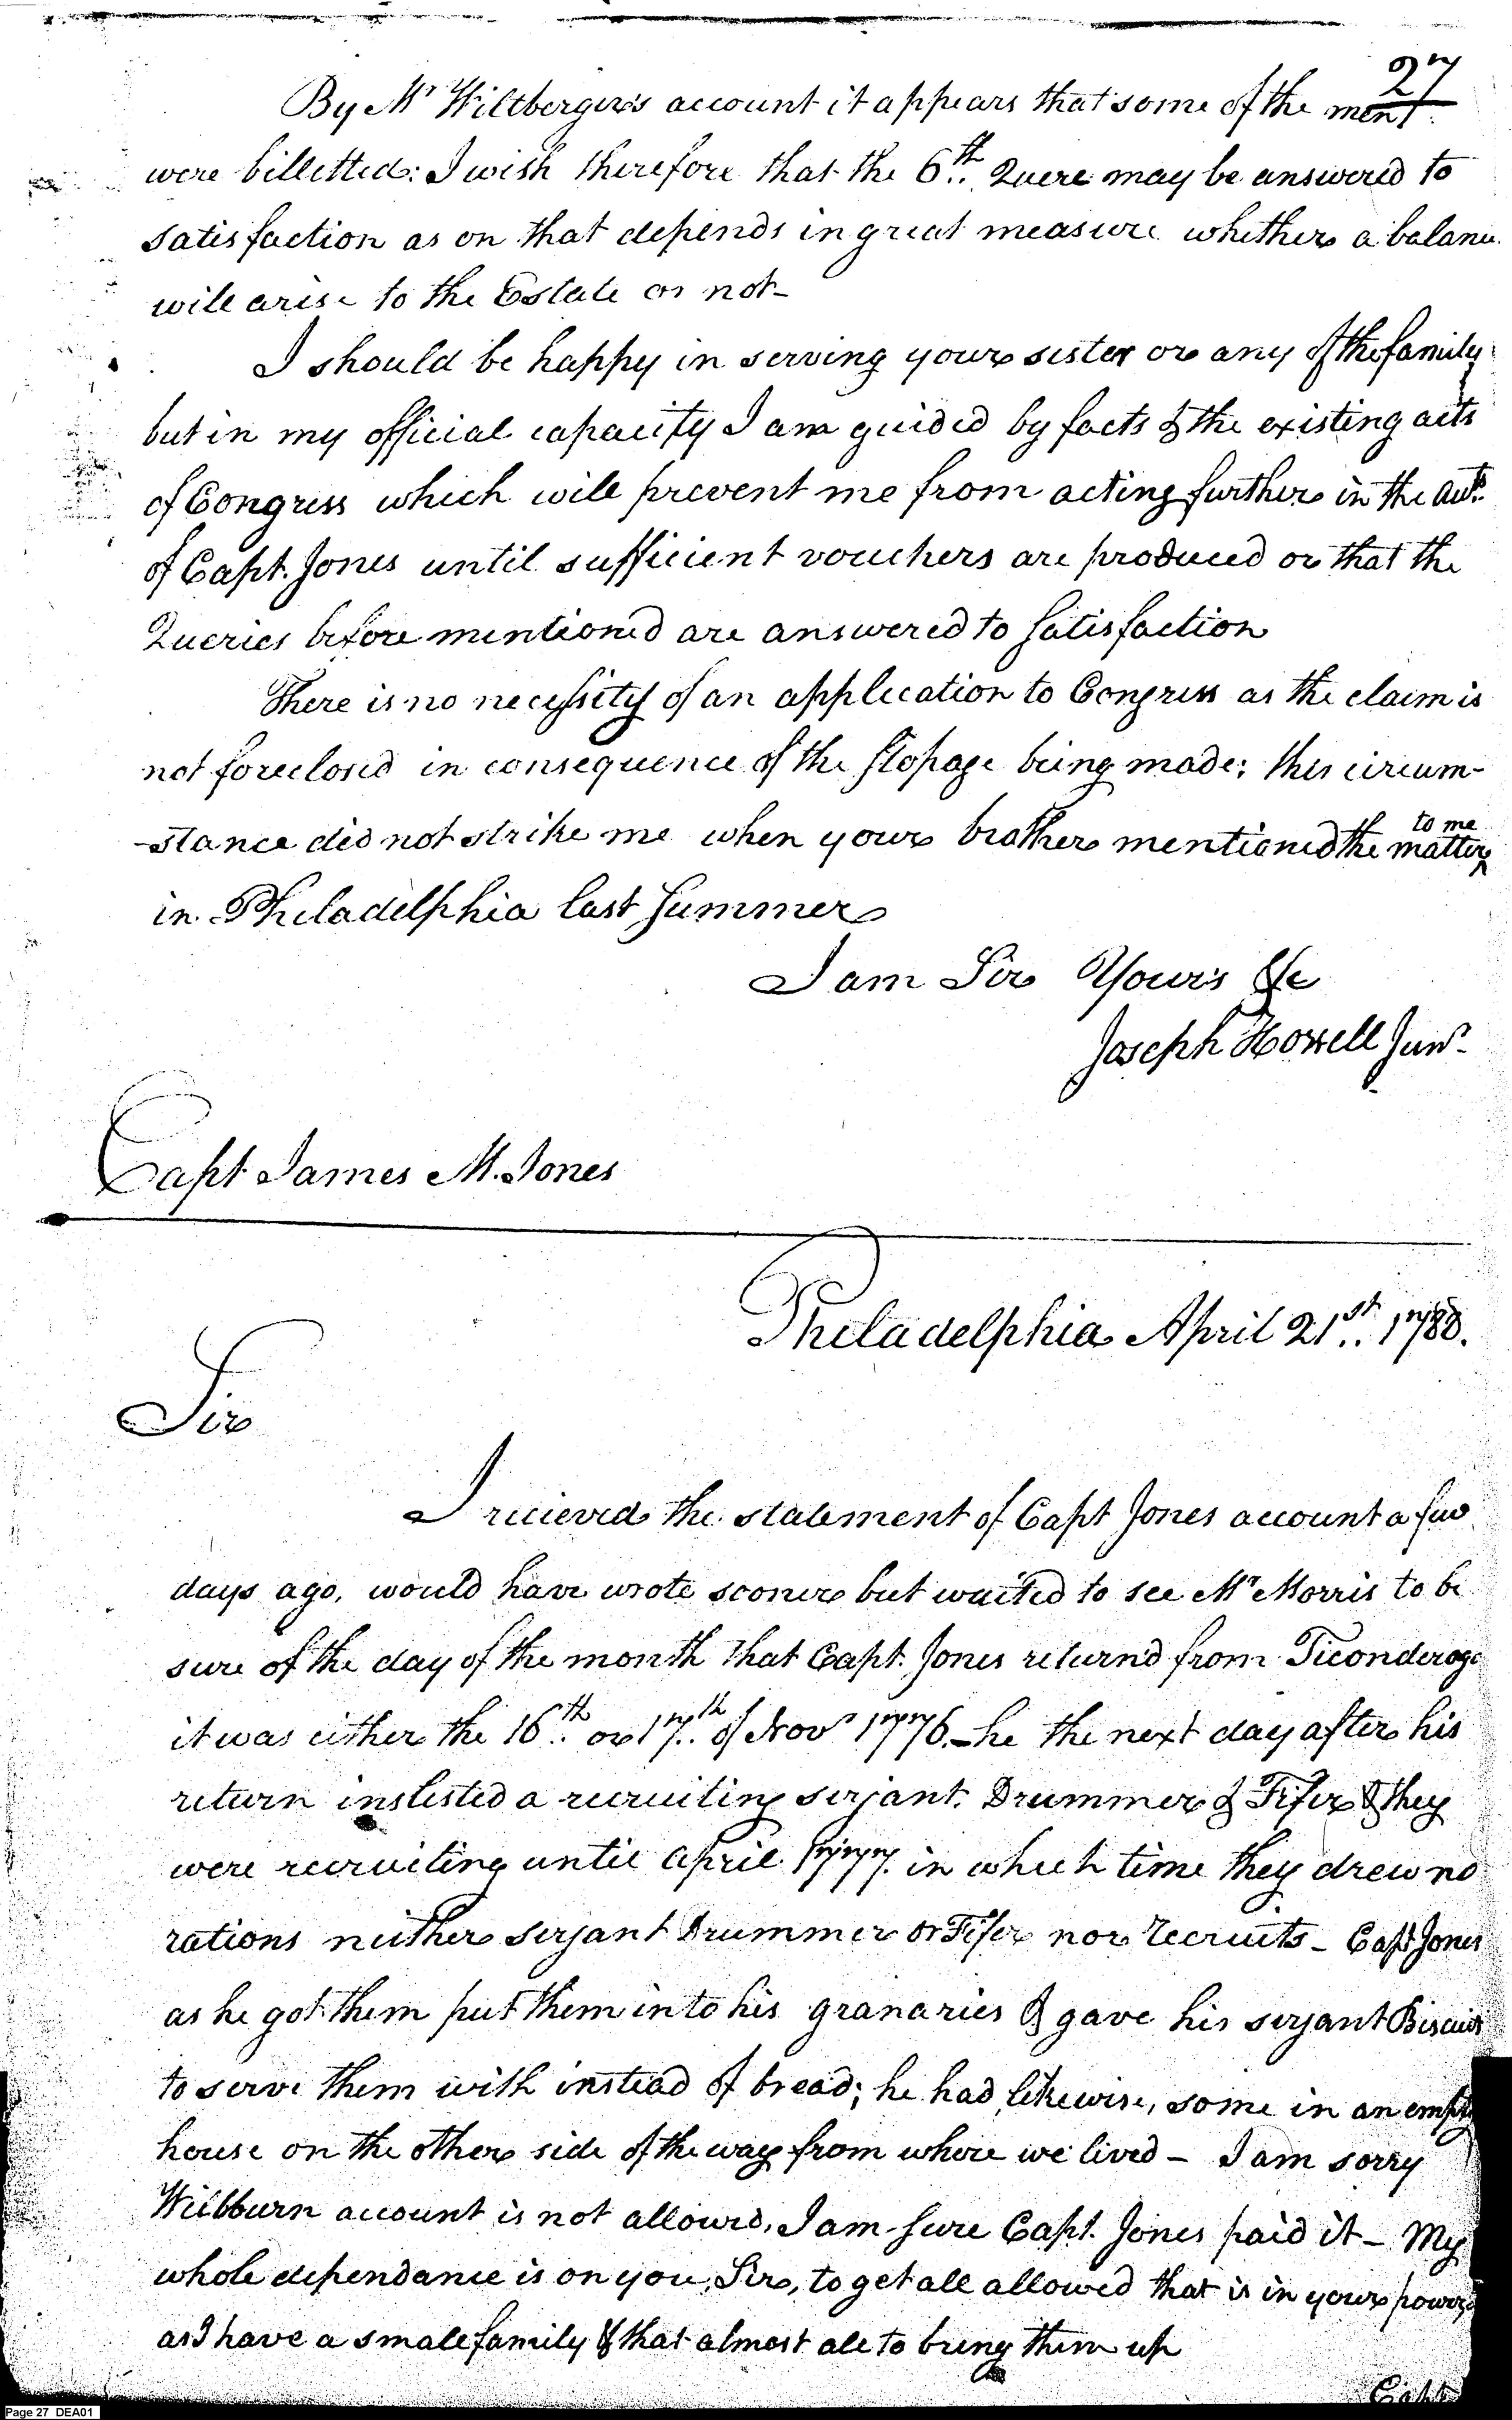 27
By Mr Wiltberger's account it appears that some of the men
were billetted: I wish therefore that the 6th Quere may be answered to
satisfaction as on that depends in great measure whether a balance
will arise to the Estate or not-
I should be happy in serving your sister or any of the family
but in my official capacity I am guided by facts & the existing acts
of Congress which will prevent me from acting further in the
of Capt. Jones until sufficient vouchers are produced or that the
Queries before mentioned are answered to satisfaction
There is no necessity of an application to Congress as the claim is
not foreclosed in consequence of the stopage being made; this circum-
-stance did not strike me when your brother mentioned the matter to me
in Philadelphia last summer
I am Sir Yours &c
Joseph Howell Junr.
Capt James M. Jones
Philadelphia April 21st. 1788.
Sir
I recieved the statement of Capt Jones account a few
days ago, would have wrote sooner but waited to see Mr Morris to be
sure of the day of the month that Capt. Jones return'd from Ticonderoga
it was either the 16th. or 17th. of Novr 1776 - he the next day after his
return inslisted a recruiting serjant. Drummer & Fifer & they
were recruiting until April 1777. in which time they drew no
rations neither serjant Drummer or Fifer nor recruits - Capt Jones
as he got them put them into his granaries & gave his serjant Biscuit
to serve them with instead of bread; he had likewise, some in an empty
house on the other side of the way from whore we lived - I am sorry
Wilbburn account is not allowed, I am sure Capt. Jones paid it - My
whole dependance is on you, Sir, to get all allowed that is in your power
as I have a small family & that almost all to bring them up
Capt
Page 27 DEA01